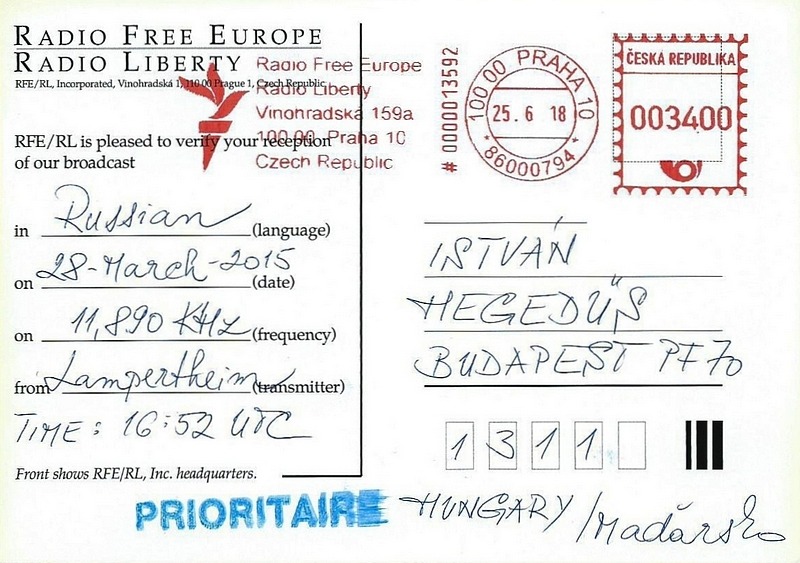 RADIO FREE EUROPE
RADIO LIBERTY
RFE/RL, Incorporated, Vinohradská 1, 110 00 Prague 1, Czech Republic
RFE/RL is pleased to verify your reception
of our broadcast
in Russian (language)
on 28-March-2015 (date)
on 11,890 KHz (frequency)
from Lampertheim (transmitter)
TIME: 16:52 UTC
Front shows RFE/RL, Inc. headquarters.
PRIORITAIRE
Radio Free Europe
Radio Liberty
Vinohradská 159a
100 00 Praha 10
Czech Republic
# 0000013592
100 00 PRAHA 10
25. 6 18
* 86000794 *
ČESKÁ REPUBLIKA
003400
ISTVÁN
HEGEDŰS
BUDAPEST PF 70
1 3 1 1
HUNGARY /Maďarsko